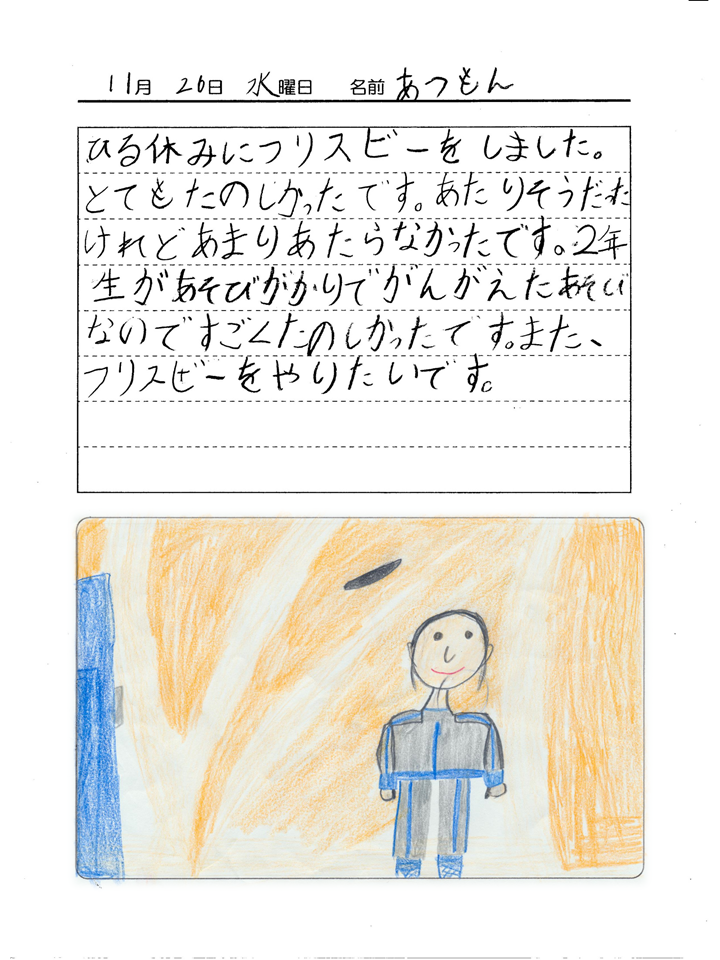 11月 26日 水曜日 名前 あつもん
ひる休みにフリスビーをしました。
とてもたのしかったです。あたりそうだった
けれどあまりあたらなかったです。2年
生があそびがかりでがんがえたあそび
なのですごくたのしかったです。また、
フリスビーをやりたいです。